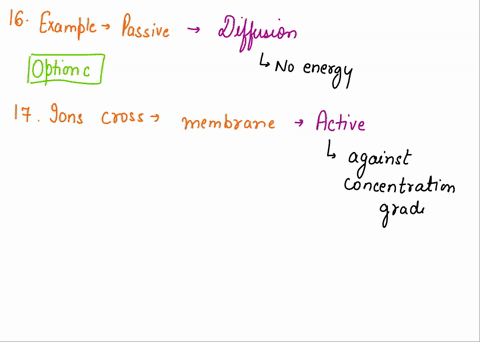 16. Example → Passive → Diffusion
↳ No energy
Option c
17. Ions cross → membrane → Active
↳ against
concentration
grade